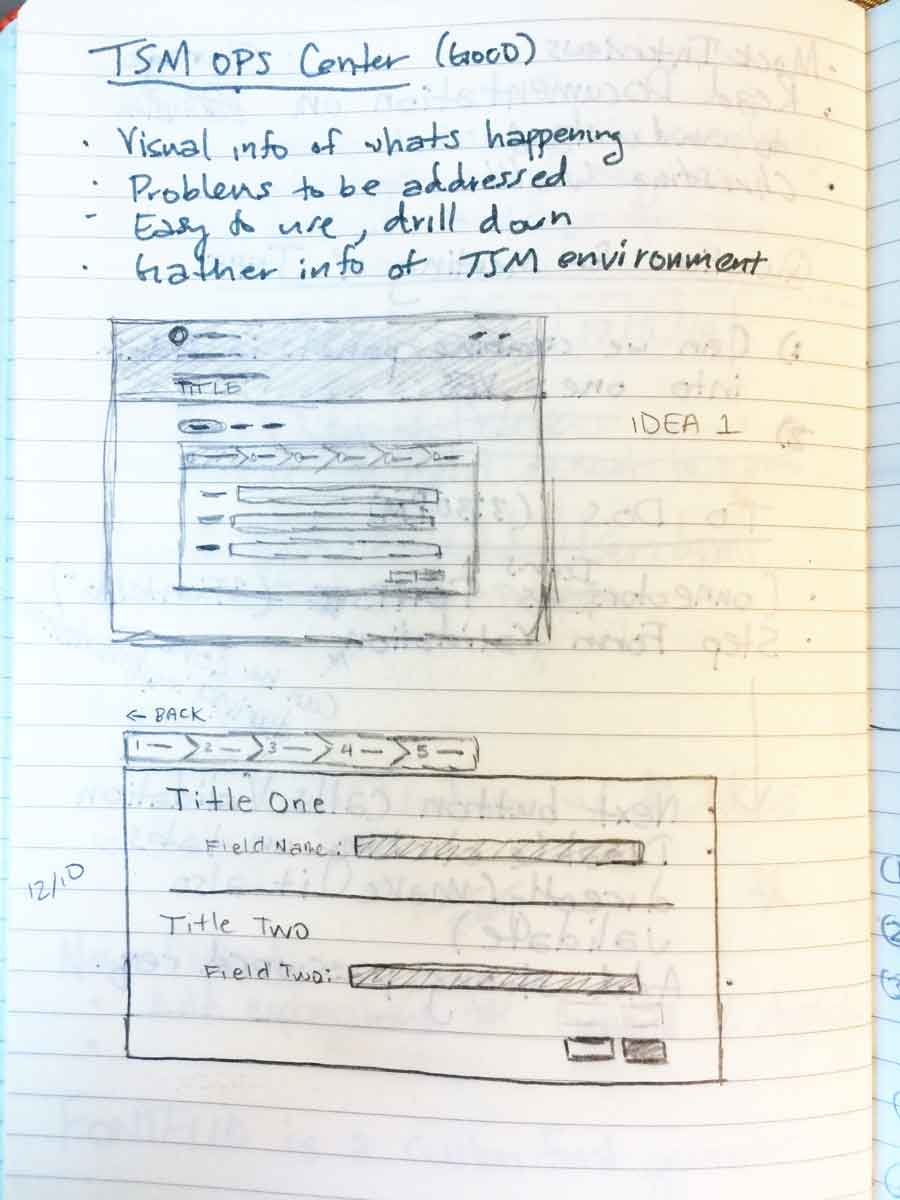 TSM OPS Center (GOOD)
· Visual info of whats happening
· Problems to be addressed
- Easy to use, drill down
· Gather info of TSM environment
TITLE
IDEA 1
← BACK
1 2 3 4 5
Title One
Field Name:
12/10
Title Two
Field Two: